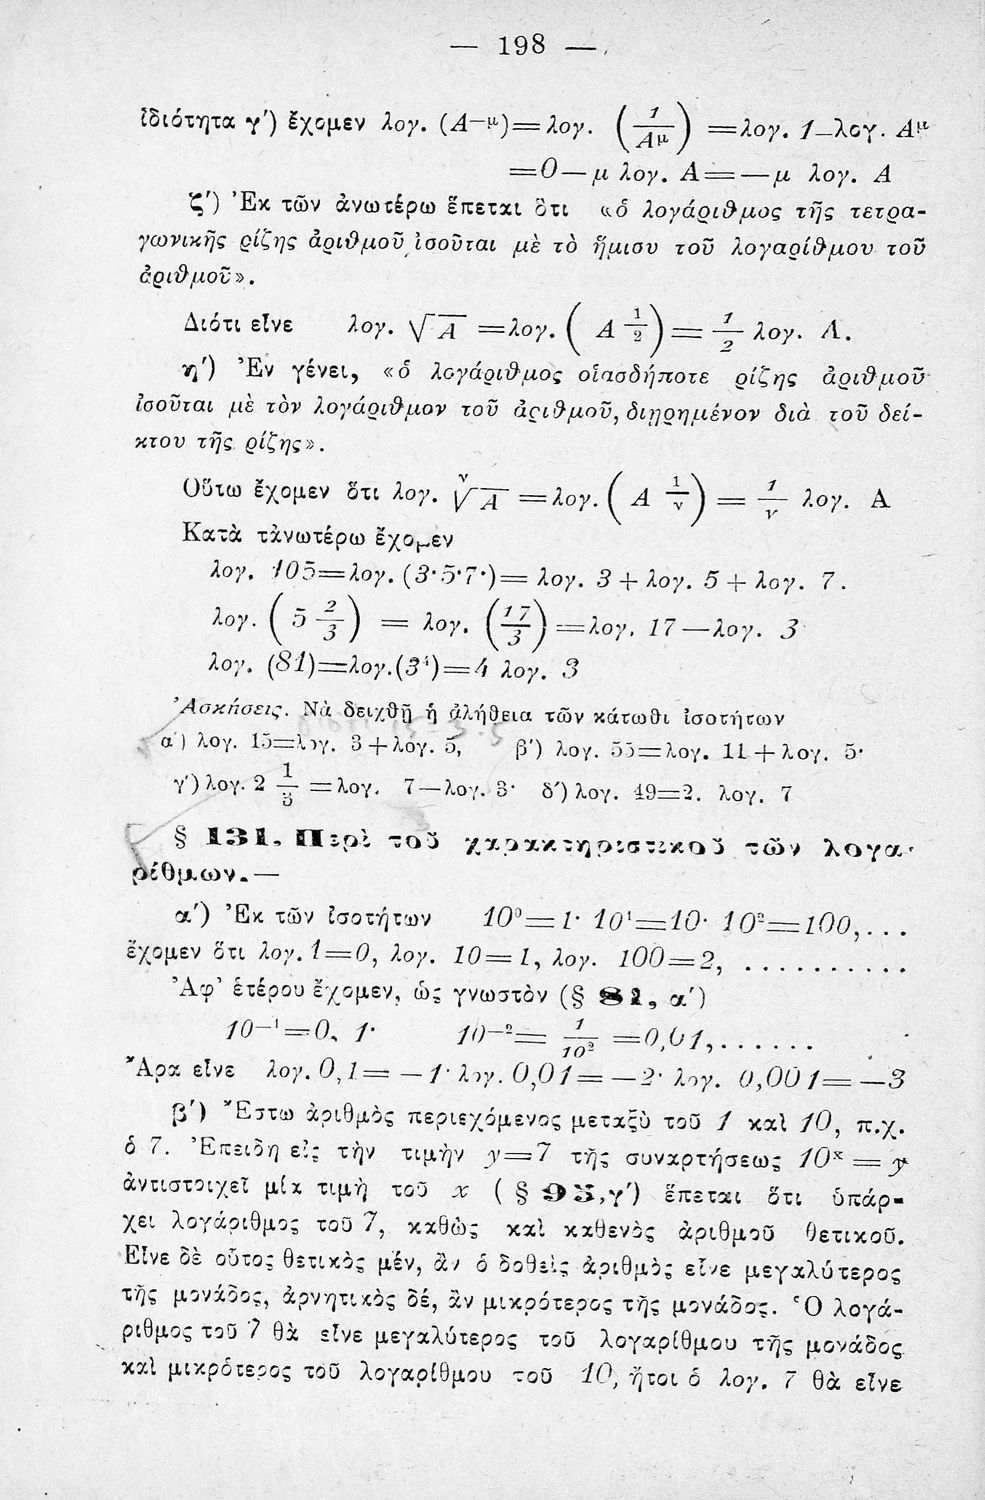 — 198 —
ἰδιότητα γ') ἔχομεν λογ. (Α—μ)=λογ. (1/Αμ) =λογ. 1—λογ. Αμ
=0—μ λογ. Α=—μ λογ. Α
ζ') Ἐκ τῶν ἀνωτέρω ἕπεται ὅτι «ὁ λογάριθμος τῆς τετρα-
γωνικῆς ρίζης ἀριθμοῦ ἰσοῦται μὲ τὸ ἥμισυ τοῦ λογαρίθμου τοῦ
ἀριθμοῦ».
Διότι εἶνε λογ. √Α =λογ. (Α 1/2) = 1/2 λογ. Α.
η') Ἐν γένει, «ὁ λογάριθμος οἱασδήποτε ρίζης ἀριθμοῦ
ἰσοῦται μὲ τὸν λογάριθμον τοῦ ἀριθμοῦ, διῃρημένον διὰ τοῦ δεί-
κτου τῆς ρίζης».
Οὕτω ἔχομεν ὅτι λογ. ν√Α =λογ. (Α 1/ν) = 1/ν λογ. Α
Κατὰ τἀνωτέρω ἔχομεν
λογ. 105=λογ. (3·5·7·)= λογ. 3 + λογ. 5 + λογ. 7.
λογ. (5 2/3) = λογ. (17/3) =λογ. 17 —λογ. 3
λογ. (81)=λογ.(3⁴)=4 λογ. 3
Ἀσκήσεις. Νὰ δειχθῇ ἡ ἀλήθεια τῶν κάτωθι ἰσοτήτων
α') λογ. 15=λογ. 3+λογ. 5, β') λογ. 55=λογ. 11+λογ. 5·
γ') λογ. 2 1/3 =λογ. 7—λογ. 3· δ') λογ. 49=2. λογ. 7
§ 131. Περὶ τοῦ χαρακτηριστικοῦ τῶν λογα-
ρίθμων.—
α') Ἐκ τῶν ἰσοτήτων 10⁰=1· 10¹=10· 10²=100,...
ἔχομεν ὅτι λογ. 1=0, λογ. 10=1, λογ. 100=2, ..........
Ἀφ' ἑτέρου ἔχομεν, ὡς γνωστὸν (§ 81, α')
10—¹=0, 1· 10—²= 1/10² =0,01,......
Ἄρα εἶνε λογ. 0,1= —1· λογ. 0,01= —2· λογ. 0,001= —3
β') Ἔστω ἀριθμὸς περιεχόμενος μεταξὺ τοῦ 1 καὶ 10, π.χ.
ὁ 7. Ἐπειδὴ εἰς τὴν τιμὴν y=7 τῆς συναρτήσεως 10ˣ = y
ἀντιστοιχεῖ μία τιμὴ τοῦ x ( § 95,γ') ἕπεται ὅτι ὑπάρ-
χει λογάριθμος τοῦ 7, καθὼς καὶ καθενὸς ἀριθμοῦ θετικοῦ.
Εἶνε δὲ οὗτος θετικὸς μέν, ἂν ὁ δοθεὶς ἀριθμὸς εἶνε μεγαλύτερος
τῆς μονάδος, ἀρνητικὸς δέ, ἂν μικρότερος τῆς μονάδος. Ὁ λογά-
ριθμος τοῦ 7 θὰ εἶνε μεγαλύτερος τοῦ λογαρίθμου τῆς μονάδος
καὶ μικρότερος τοῦ λογαρίθμου τοῦ 10, ἤτοι ὁ λογ. 7 θὰ εἶνε